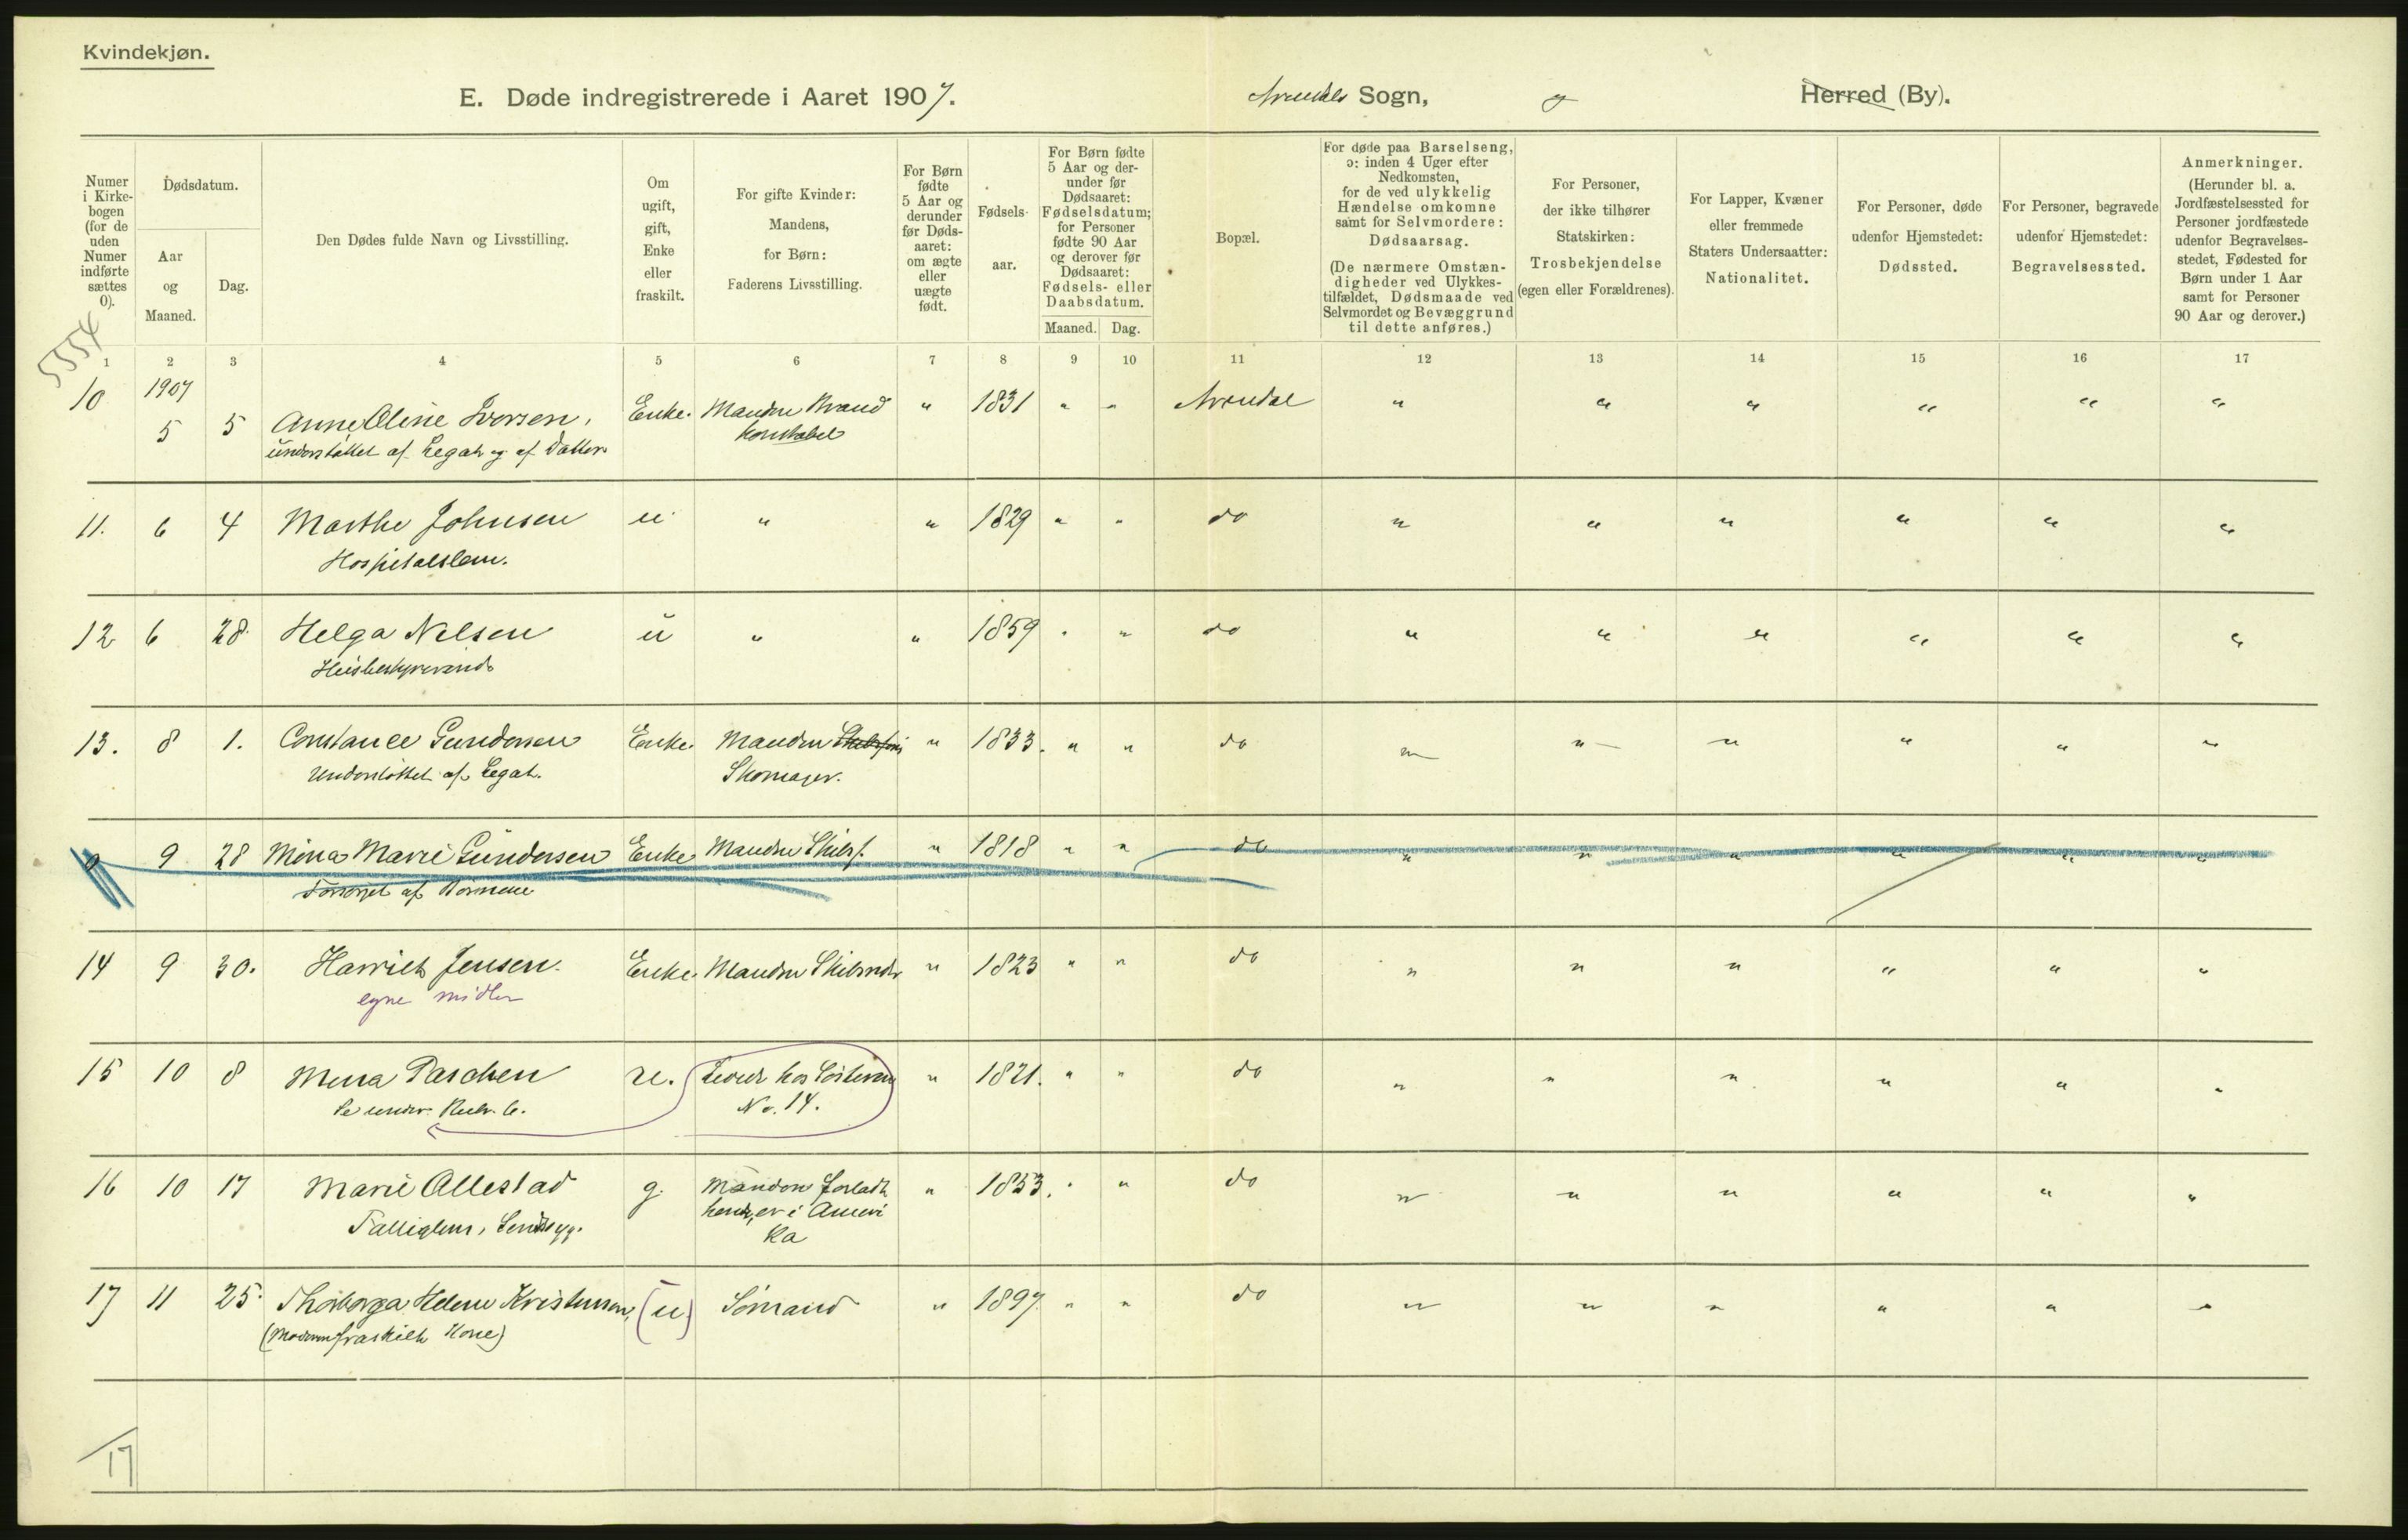 Kvindekjøn.
E. Døde indregistrerede i Aaret 1907. Arendals Sogn, Herred (By).
Numer i Kirke-bogen (for de uden Numer indførte sættes 0).
Dødsdatum.
Aar og Maaned.
Dag.
Den Dødes fulde Navn og Livsstilling.
Om ugift, gift, Enke eller fraskilt.
For gifte Kvinder: Mandens, for Børn: Faderens Livsstilling.
For Børn fødte 5 Aar og derunder før Døds-aaret: om ægte eller uægte født.
Fødsels-aar.
For Børn fødte 5 Aar og der-under før Dødsaaret: Fødselsdatum; for Personer fødte 90 Aar og derover før Dødsaaret: Fødsels- eller Daabsdatum.
Maaned. Dag.
Bopæl.
For døde paa Barselseng, ɔ: inden 4 Uger efter Nedkomsten, for de ved ulykkelig Hændelse omkomne samt for Selvmordere: Dødsaarsag.
(De nærmere Omstæn-digheder ved Ulykkes-tilfældet, Dødsmaade ved Selvmordet og Bevæggrund til dette anføres.)
For Personer, der ikke tilhører Statskirken: Trosbekjendelse (egen eller Forældrenes).
For Lapper, Kvæner eller fremmede Staters Undersaatter: Nationalitet.
For Personer, døde udenfor Hjemstedet: Dødssted.
For Personer, begravede udenfor Hjemstedet: Begravelsessted.
Anmerkninger.
(Herunder bl. a. Jordfæstelsessted for Personer jordfæstede udenfor Begravelses-stedet, Fødested for Børn under 1 Aar samt for Personer 90 Aar og derover.)
5554
1 2 3 4 5 6 7 8 9 10 11 12 13 14 15 16 17
10 1907 5 5 Anne Oline Iversen, Enke. Manden Brand " 1831 " " Arendal " " " " " "
understøttet af Legat og af Datter konstabel
11. 6 4 Marthe Johnsen u " " 1829 " " do " " " " " "
Hospitalslem.
12 6 28. Helga Nilsen u " " 1859 " " do " " " " " "
Husbestyrerinde
13. 8 1. Constance Gundersen Enke. Manden " 1833. " " do " " " " " "
Understøttet af Legat. Skomager.
0 9 28 Mina Marie Gundersen Enke Manden Skibsf. " 1818 " " do " " " " " "
Forsørget af Børnene
14 9 30. Harriet Jensen. Enke. Manden Skibsreder " 1823 " " do " " " " " "
egne midler
15 10 8 Mena Paschen u. Lever hos Søsteren " 1821. " " do " " " " " "
No. 14.
16 10 17 Marie Ollestad g. Manden forladt " 1853. " " do " " " " " "
Fattiglem, Sindssyg. hende, er i Ameri
ka
17 11 25. Thorborga Helene Kristensen, (u) Sømand " 1897. " " do " " " " " "
(Moderen fraskilt Kone)
17